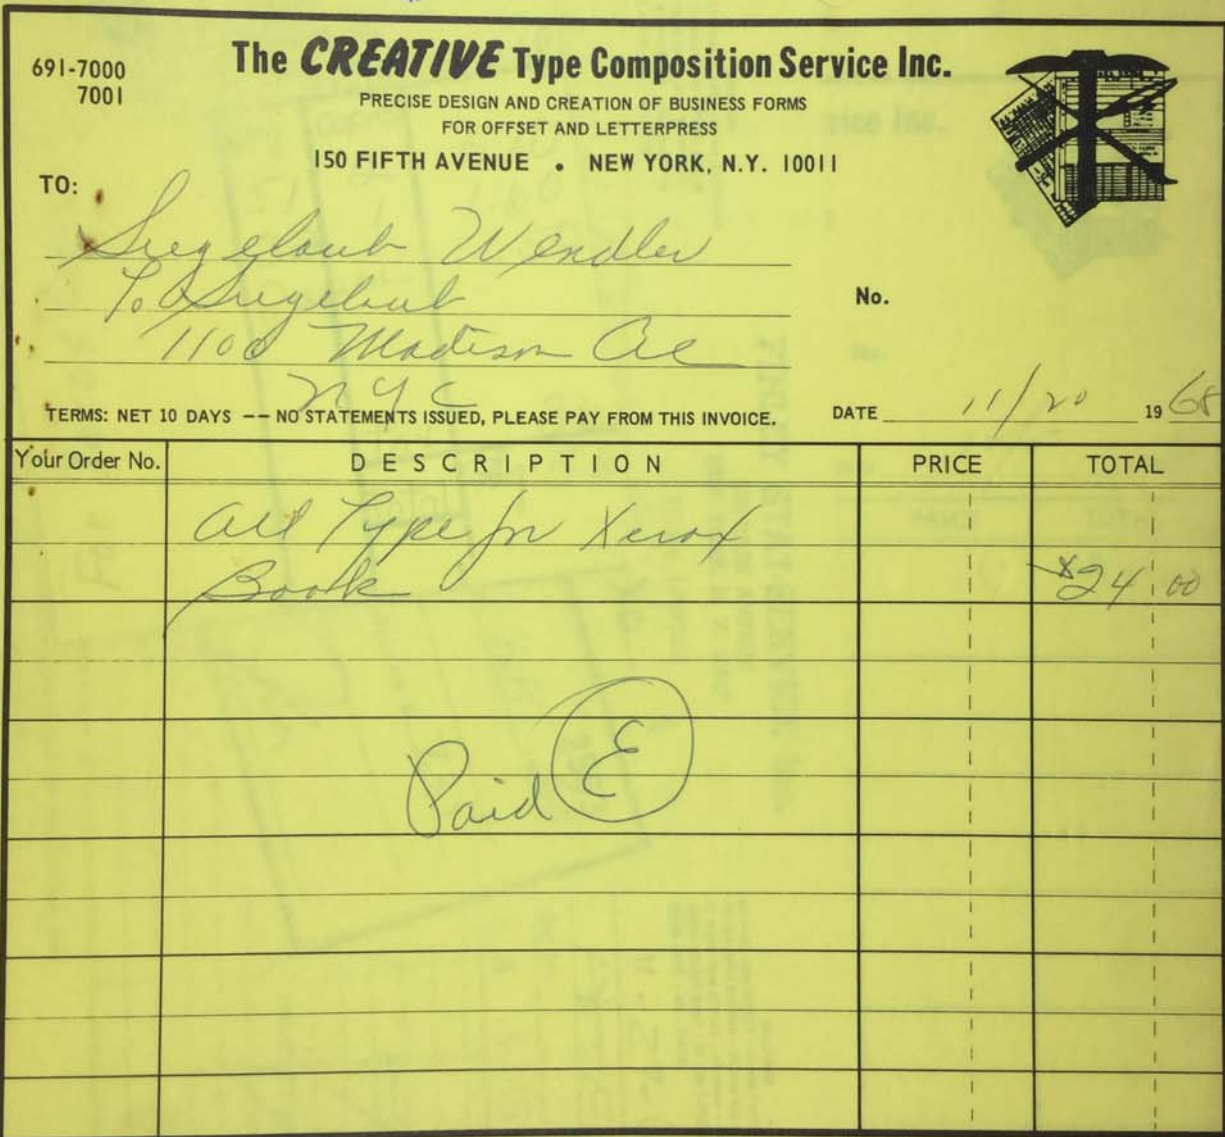 691-7000
7001
The CREATIVE Type Composition Service Inc.
PRECISE DESIGN AND CREATION OF BUSINESS FORMS
FOR OFFSET AND LETTERPRESS
150 FIFTH AVENUE • NEW YORK, N.Y. 10011
TO:
Siegelaub Wendler
Siegelaub
1100 Madison Ave
NYC
No.
TERMS: NET 10 DAYS -- NO STATEMENTS ISSUED, PLEASE PAY FROM THIS INVOICE.
DATE 11/20 1968
Your Order No. DESCRIPTION PRICE TOTAL
All Type for Xerox
Book $24 00
Paid E